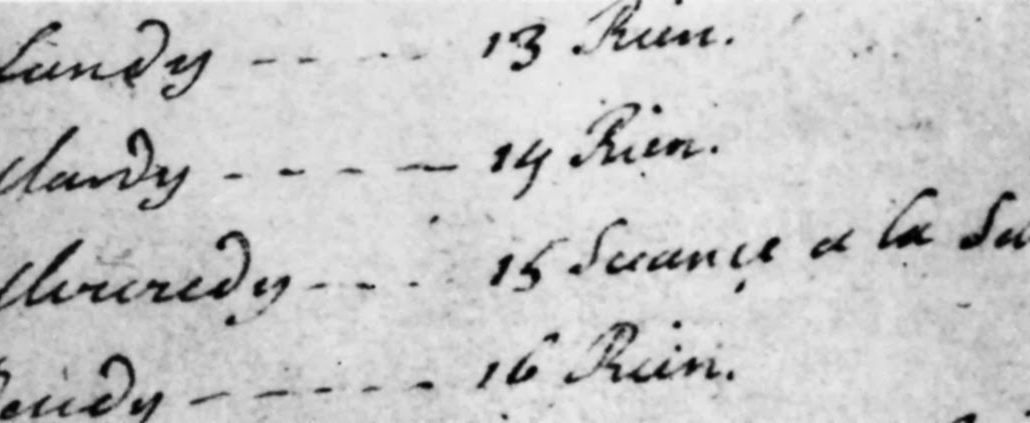 Lundy - - - - 13 Rien.
Mardy - - - - 14 Rien.
Mercredy - - - 15 Seance a la
Jeudy - - - - - 16 Rien.